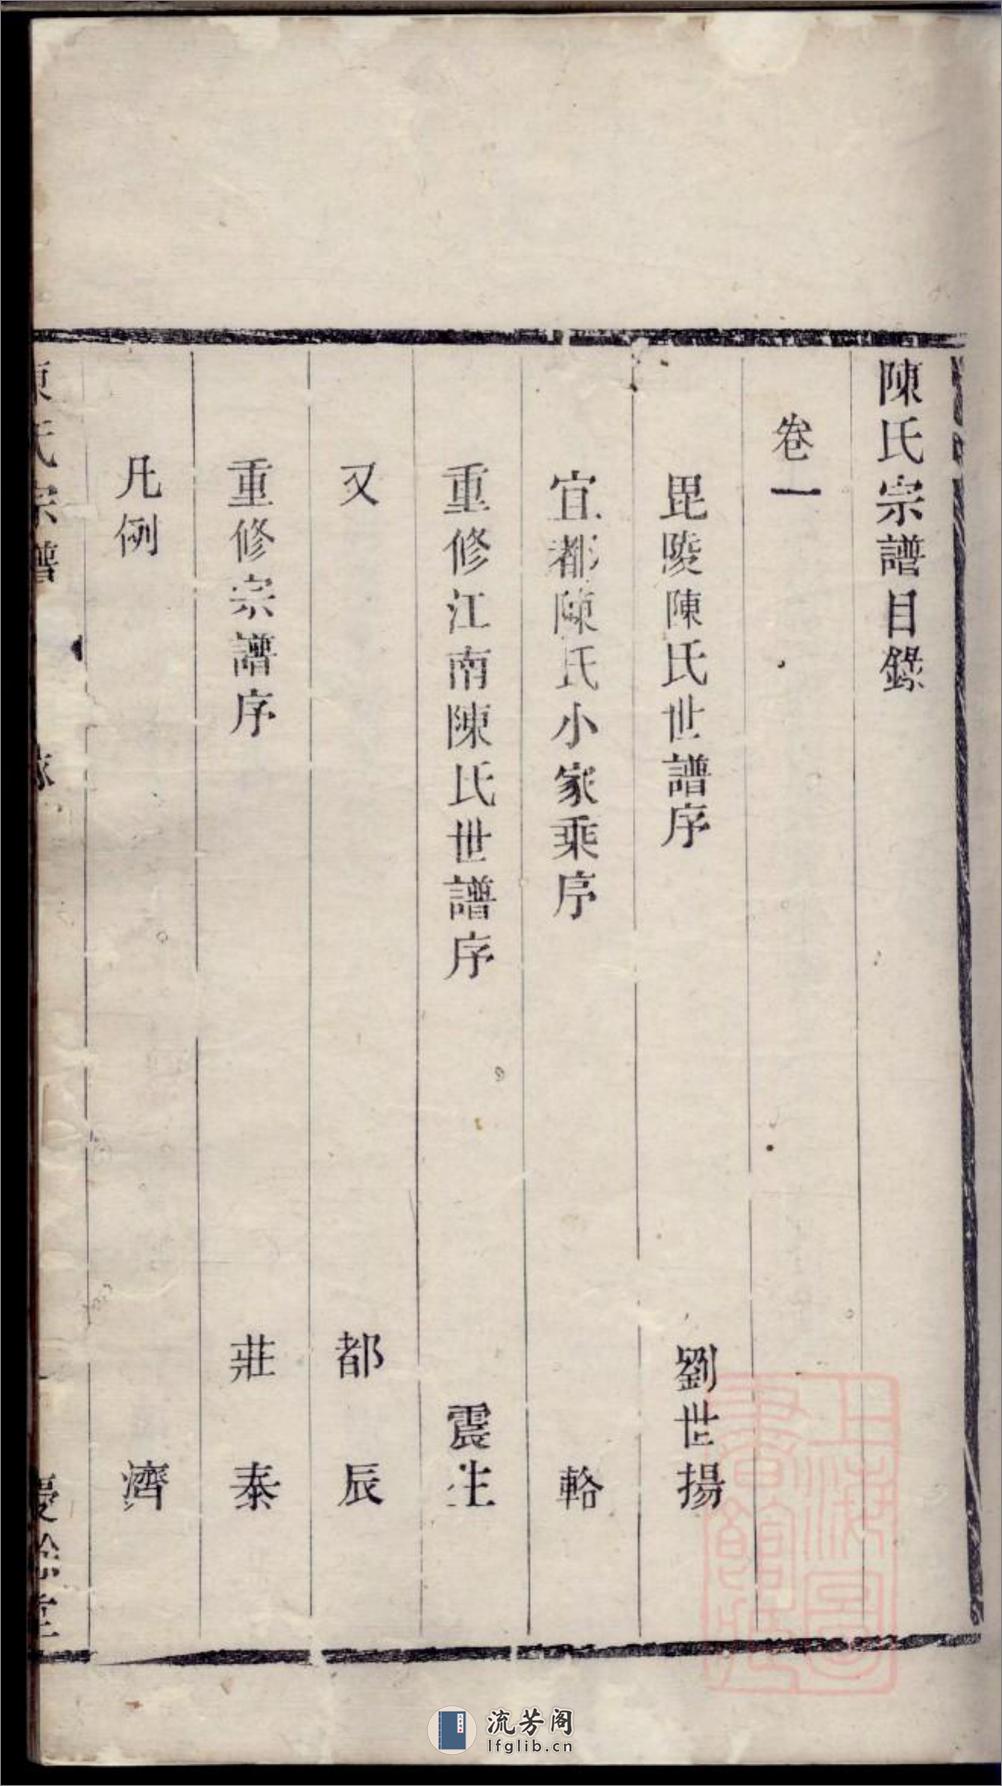 陳氏宗譜目錄
卷一
毘陵陳氏世譜序 劉世揚
宜都陳氏小家乘序 輅
重修江南陳氏世譜序 震生
又 都辰
重修宗譜序 莊泰
凡例 濟
陳氏宗譜
上海图書館藏
流芳阁
lfglib.cn